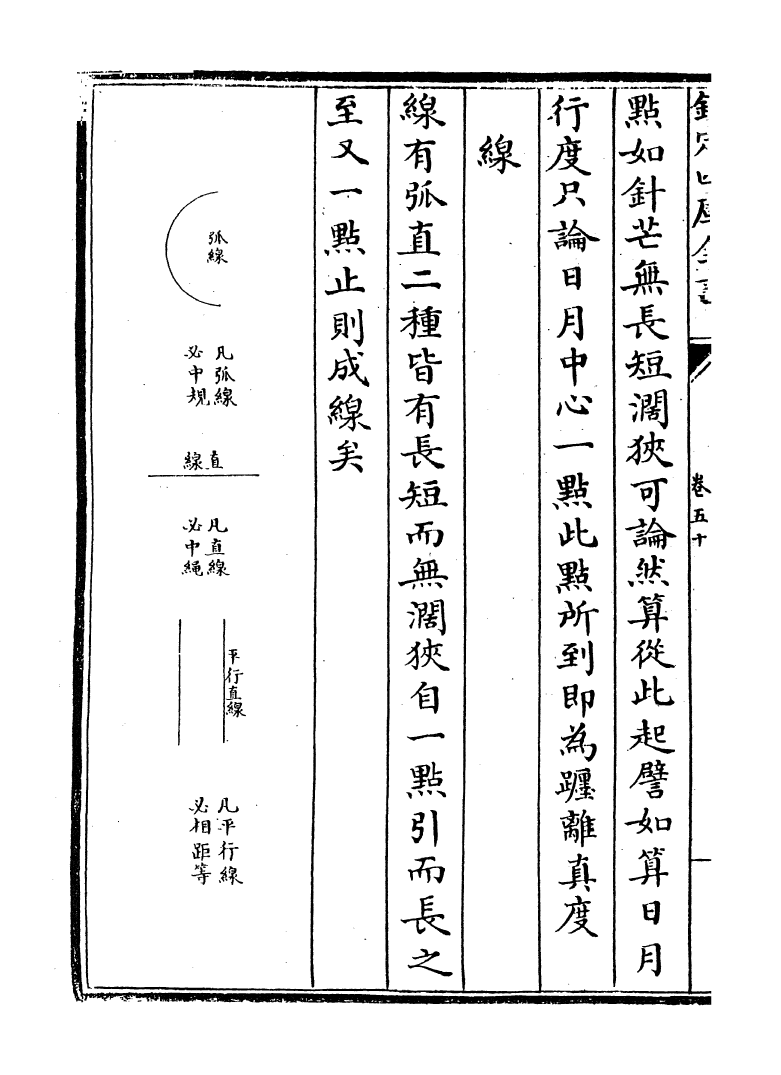 欽定四庫全書
卷五十
點如針芒無長短濶狹可論然算從此起譬如算日月
行度只論日月中心一點此點所到即為躔離真度
線
線有弧直二種皆有長短而無濶狹自一點引而長之
至又一點止則成線矣
弧線
凡弧線
必中規
直線
凡直線
必中繩
平行直線
凡平行線
必相距等